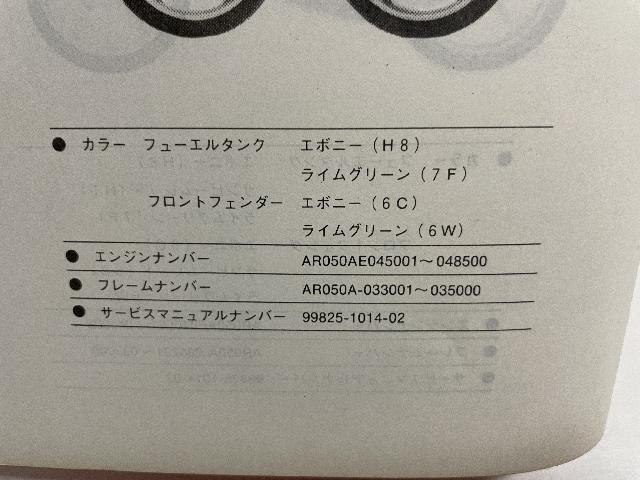 ● カラー フューエルタンク エボニー(H8)
ライムグリーン(7F)
フロントフェンダー エボニー(6C)
ライムグリーン(6W)
● エンジンナンバー AR050AE045001〜048500
● フレームナンバー AR050A-033001〜035000
● サービスマニュアルナンバー 99825-1014-02